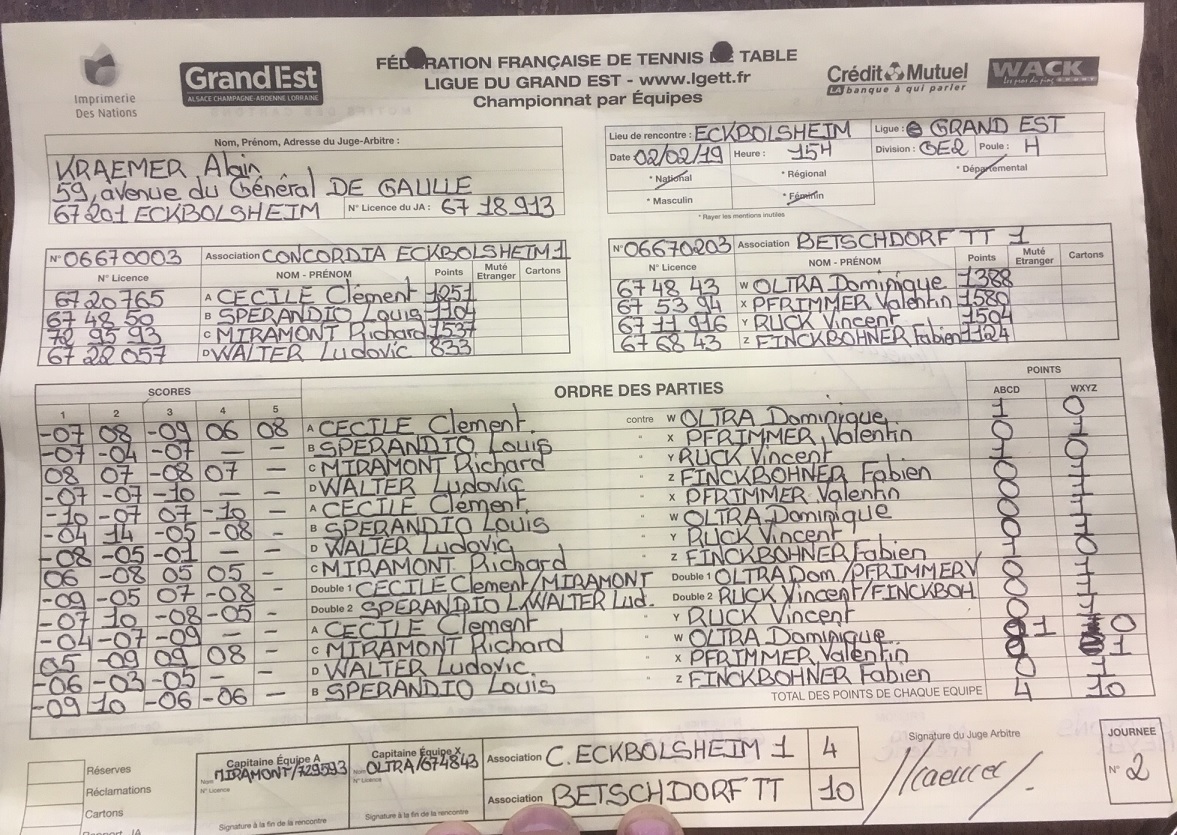 FÉDÉRATION FRANÇAISE DE TENNIS DE TABLE
LIGUE DU GRAND EST - www.lgett.fr
Championnat par Équipes
Imprimerie
Des Nations
GrandEst
ALSACE CHAMPAGNE-ARDENNE LORRAINE
Crédit Mutuel
LA banque à qui parler
WACK
Nom, Prénom, Adresse du Juge-Arbitre :
KRAEMER Alain
59, avenue du Général DE GAULLE
67201 ECKBOLSHEIM N° Licence du JA : 67 18 913
Lieu de rencontre : ECKBOLSHEIM Ligue : GRAND EST
Date 02/02/19 Heure : 15H Division : GE2 Poule : H
* National * Régional * Départemental
* Masculin * Féminin
* Rayer les mentions inutiles
N° 06670003 Association CONCORDIA ECKBOLSHEIM 1
N° Licence NOM - PRÉNOM Points Muté Etranger Cartons
67 20 765 A CECILE Clément 1251
67 48 50 B SPERANDIO Louis 1104
72 95 93 C MIRAMONT Richard 1537
67 22 057 D WALTER Ludovic 833
N° 06670203 Association BETSCHDORF TT 1
N° Licence NOM - PRÉNOM Points Muté Etranger Cartons
67 48 43 W OLTRA Dominique 1388
67 53 94 X PFRIMMER Valentin 1580
67 11 916 Y RUCK Vincent 1504
67 68 43 Z FINCKBOHNER Fabien 1124
SCORES ORDRE DES PARTIES POINTS
1 2 3 4 5 ABCD WXYZ
-07 08 -09 06 08 A CECILE Clement. contre W OLTRA Dominique 1 0
-07 -04 -07 — — B SPERANDIO Louis " X PFRIMMER Valentin 0 1
08 07 -08 07 — C MIRAMONT Richard " Y RUCK Vincent 1 0
-07 -07 -10 — — D WALTER Ludovic " Z FINCKBOHNER Fabien 0 1
-10 -07 07 -10 — A CECILE Clement. " X PFRIMMER Valentin 0 1
-04 14 -05 -08 — B SPERANDIO Louis " W OLTRA Dominique 0 1
-08 -05 -01 — — D WALTER Ludovic " Y RUCK Vincent 0 1
06 -08 05 05 — C MIRAMONT Richard " Z FINCKBOHNER Fabien 1 0
-09 -05 07 -08 — Double 1 CECILE Clement/MIRAMONT Double 1 OLTRA Dom./PFRIMMER V 0 1
-07 10 -08 -05 — Double 2 SPERANDIO L/WALTER Lud. Double 2 RUCK Vincent/FINCKBOH 0 1
-04 -07 -09 — — A CECILE Clement " Y RUCK Vincent 0 1
05 -09 09 08 — C MIRAMONT Richard " W OLTRA Dominique 1 0
-06 -03 -05 — — D WALTER Ludovic. " X PFRIMMER Valentin 0 1
-09 10 -06 -06 — B SPERANDIO Louis " Z FINCKBOHNER Fabien 0 1
TOTAL DES POINTS DE CHAQUE EQUIPE 4 10
Réserves
Réclamations
Cartons
Capitaine Équipe A
Nom MIRAMONT/729593
N° Licence
Signature à la fin de la rencontre
Capitaine Équipe X
Nom OLTRA/674843
N° Licence
Signature à la fin de la rencontre
Association C. ECKBOLSHEIM 1 4
Association BETSCHDORF TT 10
Signature du Juge Arbitre
JOURNEE
N° 2